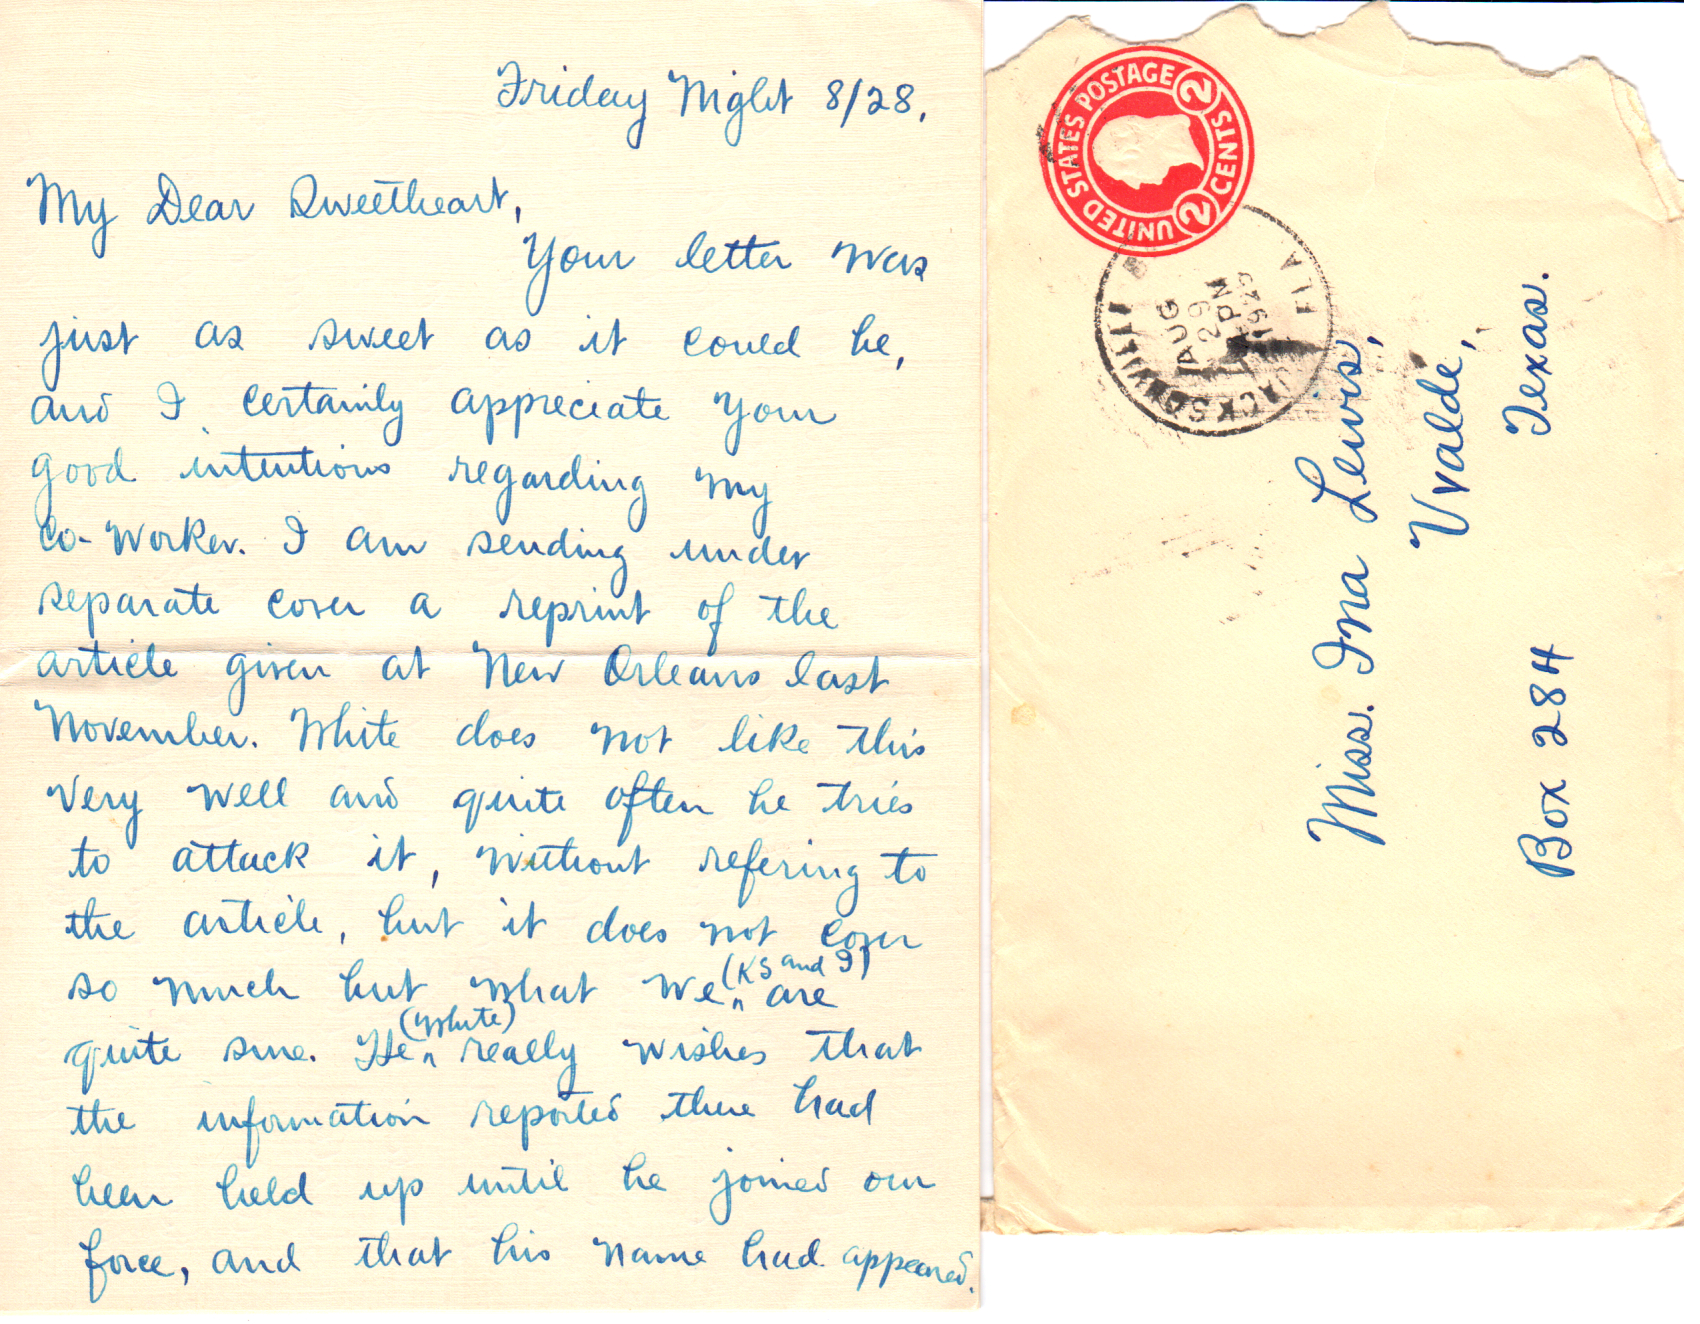 Friday Night 8/28,
My Dear Sweetheart,
Your letter was
just as sweet as it could be,
and I certainly appreciate your
good intentions regarding my
co-worker. I am sending under
separate cover a reprint of the
article given at New Orleans last
November. White does not like this
very well and quite often he tries
to attack it, without refering to
the article, but it does not cover
so much but what we (KS and I) are
quite sure. He (White) really wishes that
the information reported there had
been held up until he joined our
force, and that his name had appeared.
UNITED STATES POSTAGE
2 CENTS 2
JACKSONVILLE
FLA
AUG
29
PM
1925
Miss. Ina Lewis,
Uvalde,
Texas.
Box 284